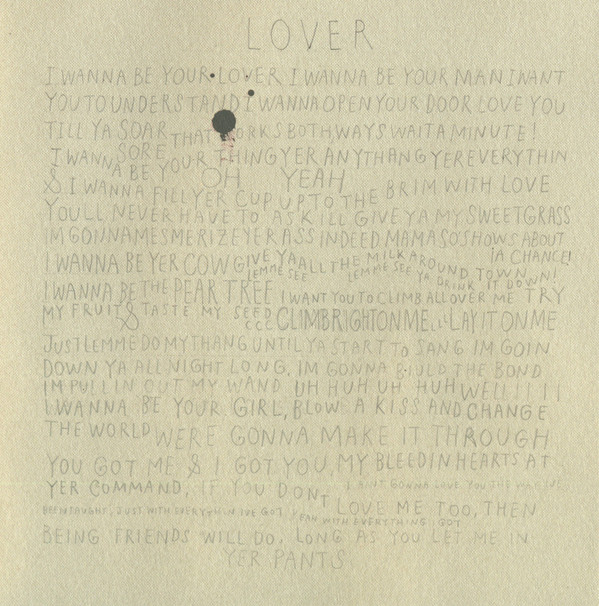 LOVER
I WANNA BE YOUR LOVER I WANNA BE YOUR MAN I WANT
YOU TO UNDERSTAND I WANNA OPEN YOUR DOOR LOVE YOU
TILL YA SOAR THAT WORKS BOTH WAYS WAIT A MINUTE!
SORE
I WANNA BE YOUR THING YER ANYTHANG YER EVERYTHIN
OH YEAH
& I WANNA FILL YER CUP UP TO THE BRIM WITH LOVE
YOULL NEVER HAVE TO ASK ILL GIVE YA MY SWEETGRASS
IM GONNA MESMERIZE YER ASS INDEED MAMA SO'S HOWS ABOUT
I WANNA BE YER COW GIVE YA ALL THE MILK AROUND TOWN iA CHANCE!
LEMME SEE LEMME SEE YA DRINK IT DOWN!
I WANNA BE THE PEAR TREE I WANT YOU TO CLIMB ALL OVER ME TRY
MY FRUIT & TASTE MY SEED CCC CLIMB RIGHT ON ME LLL LAY IT ON ME
JUST LEMME DO MY THANG UNTIL YA START TO SANG IM GOIN
DOWN YA ALL NIGHT LONG. IM GONNA B:UILD THE BOND
IM PULLIN OUT MY WAND UH HUH UH HUH WELL I I I I
I WANNA BE YOUR GIRL, BLOW A KISS AND CHANGE
THE WORLD WERE GONNA MAKE IT THROUGH
YOU GOT ME & I GOT YOU, MY BLEEDIN HEARTS AT
YER COMMAND, IF YOU DONT I AINT GONNA LOVE YOU THE WAY IVE
BEEN TAUGHT, JUST WITH EVERYTHIN IVE GOT, YEAH WITH EVERYTHING I GOT LOVE ME TOO, THEN
BEING FRIENDS WILL DO, LONG AS YOU LET ME IN
YER PANTS